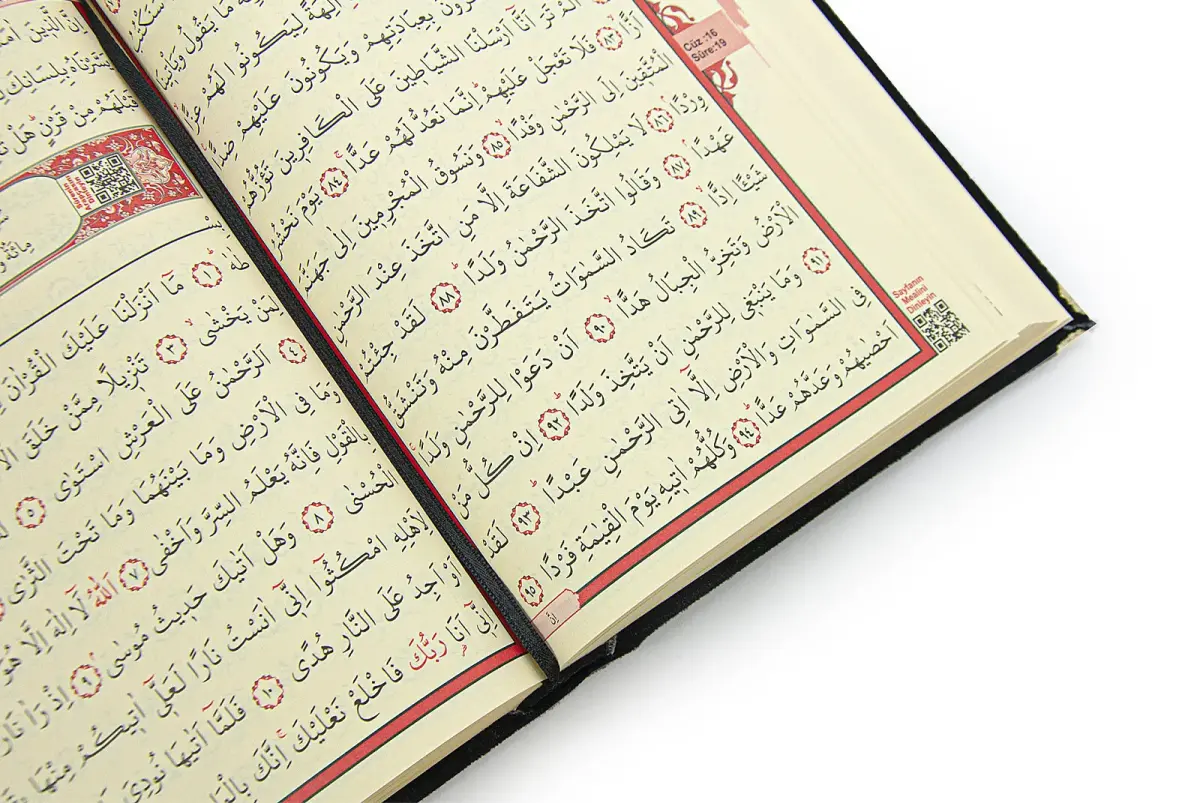 Cüz :16
Sûre:19
مَا يَقُولُ
اٰلِهَةً لِيَكُونُوا لَهُمْ عِزًّا
بِعِبَادَتِهِمْ وَيَكُونُونَ عَلَيْهِمْ ضِدًّا
اَلَمْ تَرَ اَنَّٓا اَرْسَلْنَا الشَّيَاطِينَ عَلَى الْكَافِرِينَ تَؤُزُّهُمْ
اَزًّا ﴿٨٣﴾ فَلَا تَعْجَلْ عَلَيْهِمْ اِنَّمَا نَعُدُّ لَهُمْ عَدًّا ﴿٨٤﴾ يَوْمَ نَحْشُرُ
الْمُتَّقِينَ اِلَى الرَّحْمٰنِ وَفْدًا ﴿٨٥﴾ وَنَسُوقُ الْمُجْرِمِينَ اِلٰى جَهَنَّمَ
وِرْدًا ﴿٨٦﴾ لَا يَمْلِكُونَ الشَّفَاعَةَ اِلَّا مَنِ اتَّخَذَ عِنْدَ الرَّحْمٰنِ
عَهْدًا ﴿٨٧﴾ وَقَالُوا اتَّخَذَ الرَّحْمٰنُ وَلَدًا ﴿٨٨﴾ لَقَدْ جِئْتُمْ
شَيْـًٔا اِدًّا ﴿٨٩﴾ تَكَادُ السَّمٰوَاتُ يَتَفَطَّرْنَ مِنْهُ وَتَنْشَقُّ
الْاَرْضُ وَتَخِرُّ الْجِبَالُ هَدًّا ﴿٩٠﴾ اَنْ دَعَوْا لِلرَّحْمٰنِ وَلَدًا
﴿٩١﴾ وَمَا يَنْبَغِي لِلرَّحْمٰنِ اَنْ يَتَّخِذَ وَلَدًا ﴿٩٢﴾ اِنْ كُلُّ مَنْ
فِي السَّمٰوَاتِ وَالْاَرْضِ اِلَّٓا اٰتِي الرَّحْمٰنِ عَبْدًا ﴿٩٣﴾ لَقَدْ
اَحْصٰيهُمْ وَعَدَّهُمْ عَدًّا ﴿٩٤﴾ وَكُلُّهُمْ اٰتِيهِ يَوْمَ الْقِيٰمَةِ فَرْدًا ﴿٩٥﴾
اِنَّ
Sayfanın
Mealini
Dinleyin
اِنَّ الَّذِينَ
يَسَّرْنَاهُ بِلِسَانِكَ
قَبْلَهُمْ مِنْ قَرْنٍ هَلْ
طٰهٰ ﴿١﴾ مَٓا اَنْزَلْنَا عَلَيْكَ الْقُرْاٰنَ
لِمَنْ يَخْشٰى ﴿٣﴾ تَنْزِيلًا مِمَّنْ خَلَقَ
﴿٤﴾ اَلرَّحْمٰنُ عَلَى الْعَرْشِ اسْتَوٰى ﴿٥﴾
وَمَا فِي الْاَرْضِ وَمَا بَيْنَهُمَا وَمَا تَحْتَ الثَّرٰى
بِالْقَوْلِ فَاِنَّهُ يَعْلَمُ السِّرَّ وَاَخْفٰى ﴿٧﴾ اَللّٰهُ لَٓا اِلٰهَ اِلَّا هُوَ
الْحُسْنٰى ﴿٨﴾ وَهَلْ اَتٰيكَ حَدِيثُ مُوسٰى ﴿٩﴾ اِذْ رَاٰ نَارًا
لِاَهْلِهِ امْكُثُٓوا اِنِّٓي اٰنَسْتُ نَارًا لَعَلِّٓي اٰتِيكُمْ مِنْهَا
اَوْ اَجِدُ عَلَى النَّارِ هُدًى ﴿١٠﴾ فَلَمَّٓا اَتٰيهَا نُودِيَ
اِنِّٓي اَنَا رَبُّكَ فَاخْلَعْ نَعْلَيْكَ اِنَّكَ